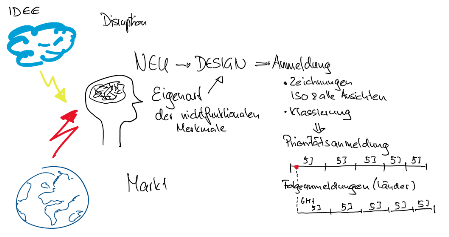 IDEE
Disruption
NEU → DESIGN ⇒ Anmeldung
Eigenart
der nichtfunktionalen
Merkmale
• Zeichnungen
ISO & alle Ansichten
• Klassierung
Prioritätsanmeldung
5J 5J 5J 5J 5J
Markt
Folgeanmeldungen (Länder)
6Mt
5J 5J 5J 5J 5J